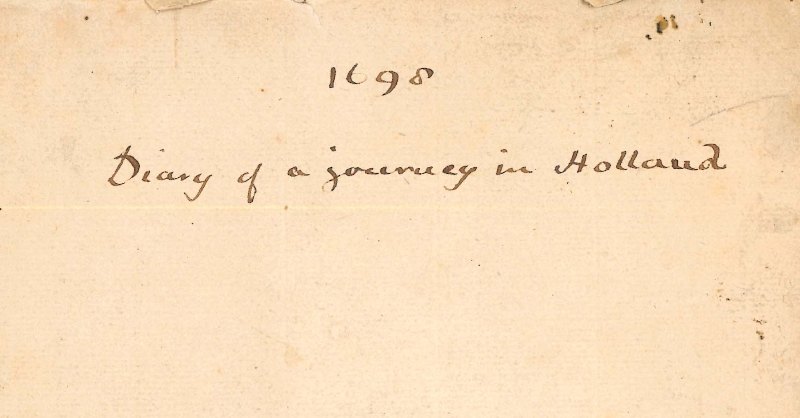 1698
Diary of a journey in Holland